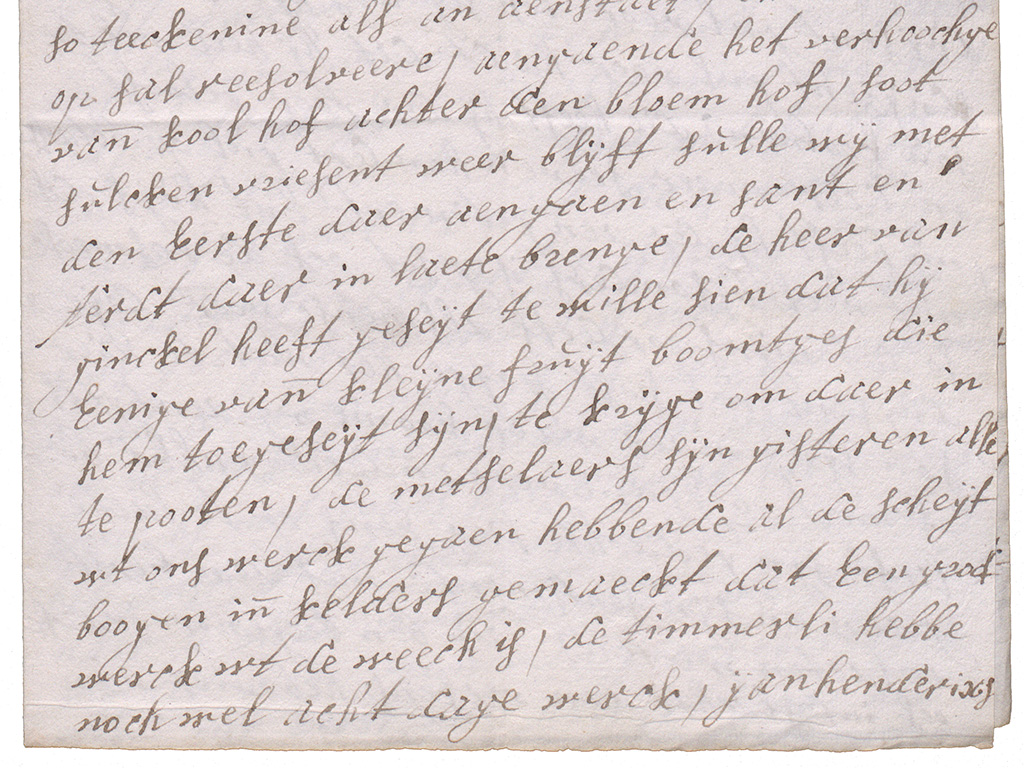 so teeckenine als an aenstaet,
op sal reesolveere, aengaende het verhoochge
vañ kool hof achter den bloem hof, soot
sulcken vriesent weer blijft sulle wij met
den Eerste daer aengaen en sant en
ferdt daer in laete brenge, de heer van
ginckel heeft geseijt te wille sien dat hij
Eenige vañ kleijne fruijt boomtges die
hem toegeseijt sijn, te krijge om daer in
te pooten, de metselaers sijn gisteren alle
wt ons werck gegaen hebbende al de scheijt
boogen iñ kelders gemaeckt dat Een groot
werck wt de weech is, de timmerli hebbe
noch wel acht dage werck, janhenderixs